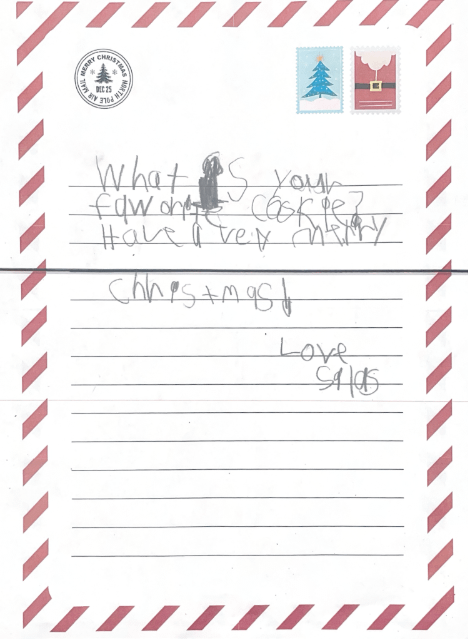 MERRY CHRISTMAS
DEC 25
NORTH POLE AIR MAIL
What is your
favorite cookie?
Have a very merry
Chhistmas!
Love